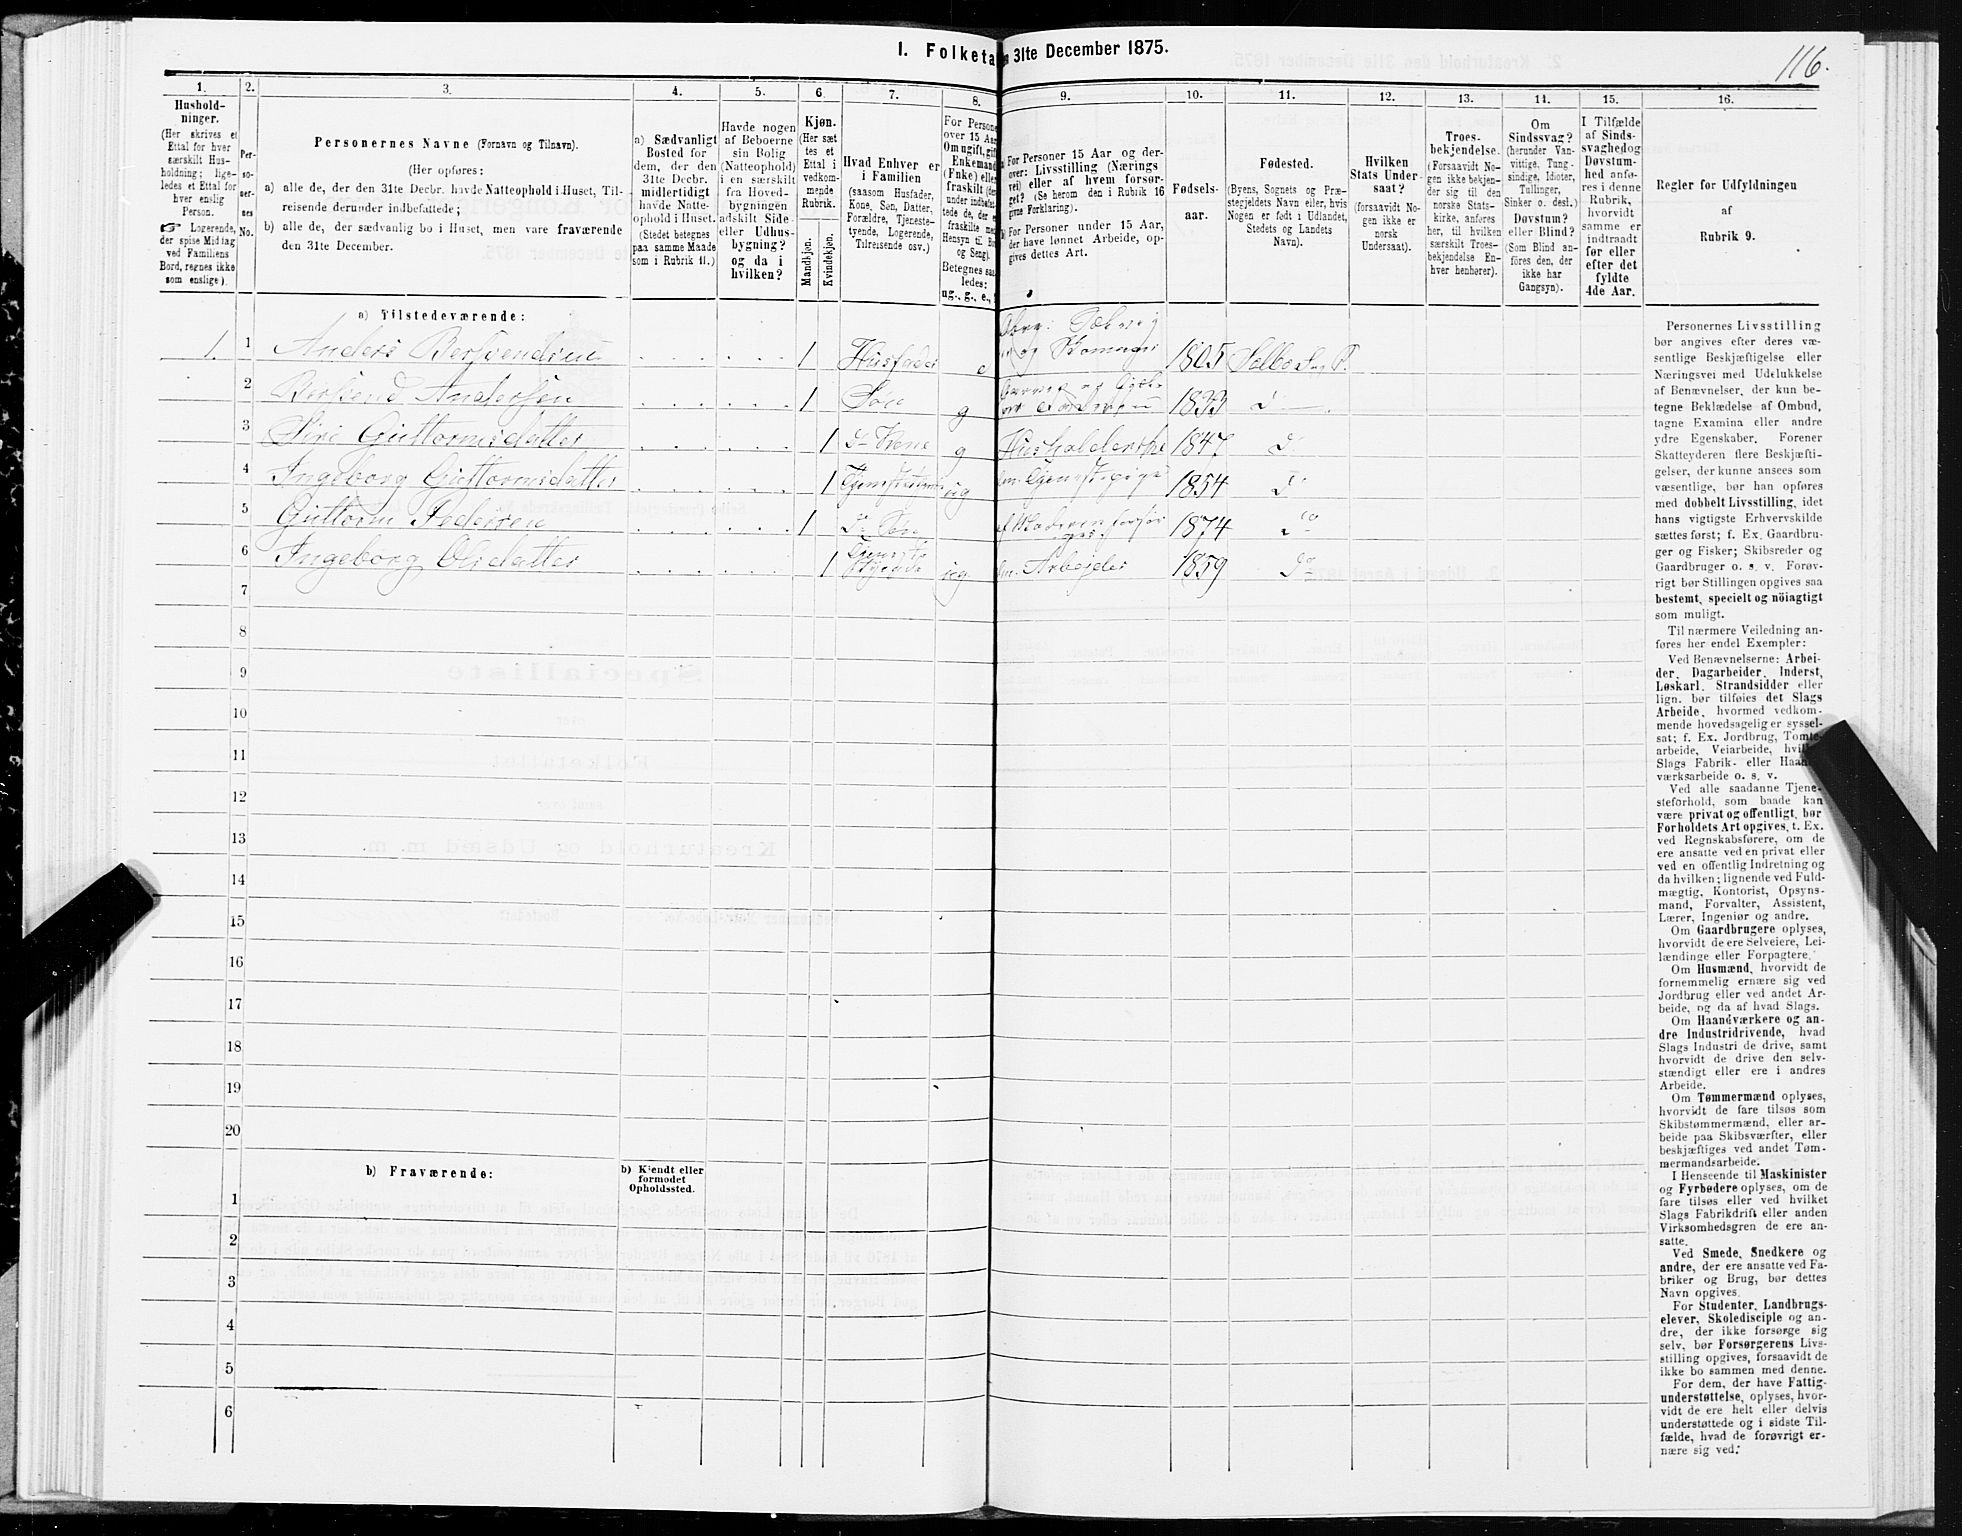 116.
I. Folketa
n 31te December 1875.
1.
2.
3.
4.
5.
6.
7.
8.
9.
10.
11.
12.
13.
14.
15.
16.
Hushold-
ninger.
(Her skrives et
Ettal for hver
særskilt Hus-
holdning; lige-
ledes et Ettal for
hver enslig
Person.
☞ Logerende,
der spise Middag
ved Familiens
Bord, regnes ikke
som enslige).
Per-
so-
ner-
nes
No.
Personernes Navne (Fornavn og Tilnavn).
(Her opføres:
a) alle de, der den 31te Decbr. havde Natteophold i Huset, Til-
reisende derunder indbefattede;
b) alle de, der sædvanlig bo i Huset, men vare fraværende
den 31te December.
a) Sædvanligt
Bosted for
dem, der den
31te Decbr.
midlertidigt
havde Natte-
ophold i Huset.
(Stedet betegnes
paa samme Maade
som i Rubrik 11.)
Havde nogen
af Beboerne
sin Bolig
(Natteophold)
i en særskilt
fra Hoved-
bygningen
adskilt Side-
eller Udhus-
bygning?
og da i
hvilken?
Kjøn.
(Her sæt-
tes et
Ettal i
vedkom-
mende
Rubrik.
Mandkjøn.
Kvindekjøn.
Hvad Enhver er
i Familien
(saasom Husfader,
Kone, Søn, Datter,
Forældre, Tjeneste-
tyende, Logerende,
Tilreisende osv.)
For Persone
over 15 Aar
Om ugift, gift
Enkemand
(Enke) elle
fraskilt (der
under indbefat
tede de, der e
fraskilte med
Hensyn til Bo
og Seng).
Betegnes saa
ledes:
ug., g., e.,
For Personer 15 Aar og der-
over: Livsstilling (Nærings
vei) eller af hvem forsør-
get? (Se herom den i Rubrik 16
givne Forklaring).
For Personer under 15 Aar,
der have lønnet Arbeide, op-
gives dettes Art.
Fødsels-
aar.
Fødested.
(Byens, Sognets og Præ-
stegjeldets Navn eller, hvis
Nogen er født i Udlandet,
Stedets og Landets
Navn).
Hvilken
Stats Under-
saat?
(forsaavidt No-
gen ikke er
norsk
Undersaat).
Troes-
bekjendelse.
(Forsaavidt No-
gen ikke bekjen-
der sig til den
norske Stats-
kirke, anføres
her, til hvilken
særskilt Troes-
bekjendelse En-
hver henhører).
Om
Sindssvag?
(herunder Van-
vittige, Tung-
sindige, Idioter,
Tullinger,
Sinker o. desl.)
Døvstum?
eller Blind?
(Som Blind an-
føres den, der
ikke har
Gangsyn).
I Tilfælde
af Sinds-
svaghed og
Døvstum-
hed anfø-
res i denne
Rubrik,
hvorvidt
samme er
indtraadt
før eller
efter det
fyldte
4de Aar.
Regler for Udfyldningen
af
Rubrik 9.
a) Tilstedeværende:
1. 1 Anders Bersvendsen 1 Husfader e og 1805 Selbo S. og P.
2 Bersvend Andersen 1 Søn g 1833 D
3 Siri Guttormsdatter 1 Ds Kone g Husholderske 1847 D
4 Ingeborg Guttormsdatter 1 ug 1854 D
5 Guttorm Pedersen 1 Ds Søn 1874 Do
6 Ingeborg Olsdatter 1 ug. Arbejder 1859 Do
7
8
9
10
11
12
13
14
15
16
17
18
19
20
b) Fraværende:
b) Kjendt eller
formodet
Opholdssted.
1
2
3
4
5
6
Personernes Livsstilling
bør angives efter deres væ-
sentlige Beskjæftigelse eller
Næringsvei med Udelukkelse
af Benævnelser, der kun be-
tegne Beklædelse af Ombud,
tagne Examina eller andre
ydre Egenskaber. Forener
Skatteyderen flere Beskjæfti-
gelser, der kunne ansees som
væsentlige, bør han opføres
med dobbelt Livsstilling, idet
hans vigtigste Erhvervskilde
sættes først; f. Ex. Gaardbru-
ger og Fisker; Skibsreder og
Gaardbruger o. s. v. Forøv-
rigt bør Stillingen opgives saa
bestemt, specielt og nöiagtigt
som muligt.
Til nærmere Veiledning an-
føres her endel Exempler:
Ved Benævnelserne: Arbei-
der, Dagarbeider, Inderst,
Løskarl, Strandsidder eller
lign. bør tilføies det Slags
Arbeide, hvormed vedkom-
mende hovedsagelig er syssel-
sat; f. Ex. Jordbrug, Tomte-
arbeide, Veiarbeide, hvilket
Slags Fabrik- eller Haand-
værksarbeide o. s. v.
Ved alle saadanne Tjene-
steforhold, som baade kan
være privat og offentligt, bør
Forholdets Art opgives, t. Ex.
ved Regnskabsførere, om de
ere ansatte ved en privat eller
ved en offentlig Indretning og
da hvilken; lignende ved Fuld-
mægtig, Kontorist, Opsyns-
mand, Forvalter, Assistent,
Lærer, Ingeniør og andre.
Om Gaardbrugere oplyses,
hvorvidt de ere Selveiere, Lei-
lændinge eller Forpagtere.
Om Husmænd, hvorvidt de
fornemmelig ernære sig ved
Jordbrug eller ved andet Ar-
beide, og da af hvad Slags.
Om Haandværkere og an-
dre Industridrivende, hvad
Slags Industri de drive, samt
hvorvidt de drive den selv-
stændigt eller ere i andres
Arbeide.
Om Tømmermænd oplyses,
hvorvidt de fare tilsøs som
Skibstømmermænd, eller ar-
beide paa Skibsværfter, eller
beskjæftiges ved andet Tøm-
mermandsarbeide.
I Henseende til Maskinister
og Fyrbødere oplyses, om de
fare tilsøs eller ved hvilket
Slags Fabrikdrift eller anden
Virksomhedsgren de ere an-
satte.
Ved Smede, Snedkere og
andre, der ere ansatte ved Fa-
briker og Brug, bør dettes
Navn opgives.
For Studenter, Landbrugs-
elever, Skoledisciple og an-
dre, der ikke forsørge sig
selv, bør Forsørgerens Livs-
stilling opgives, forsaavidt de
ikke bo sammen med denne.
For dem, der have Fattig-
understøttelse, oplyses, hvor-
vidt de ere helt eller delvis
understøttede og i sidste Til-
fælde, hvad de forøvrigt er-
nære sig ved.